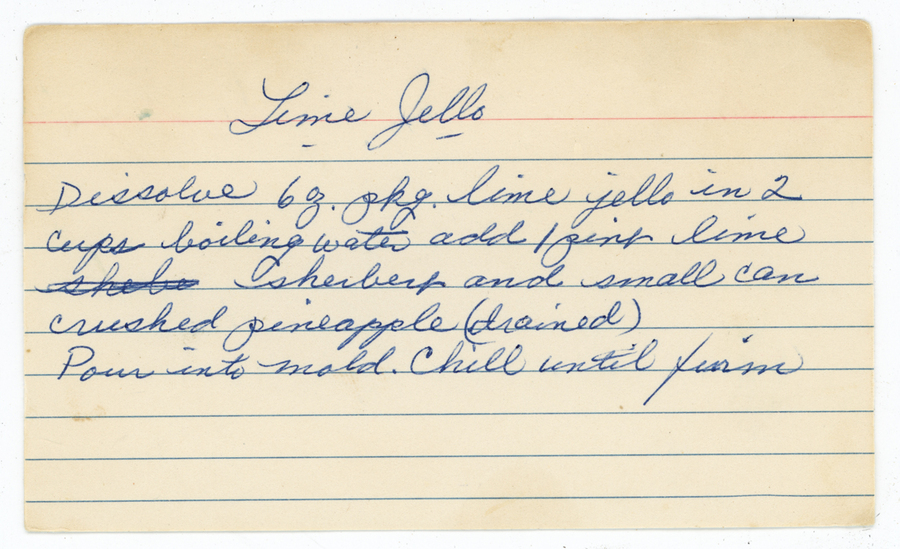 Lime Jello
Dissolve 6 oz. pkg. lime jello in 2
cups boiling water add 1 pint lime
shebe sherbert and small can
crushed pineapple (drained)
Pour into mold. Chill until firm